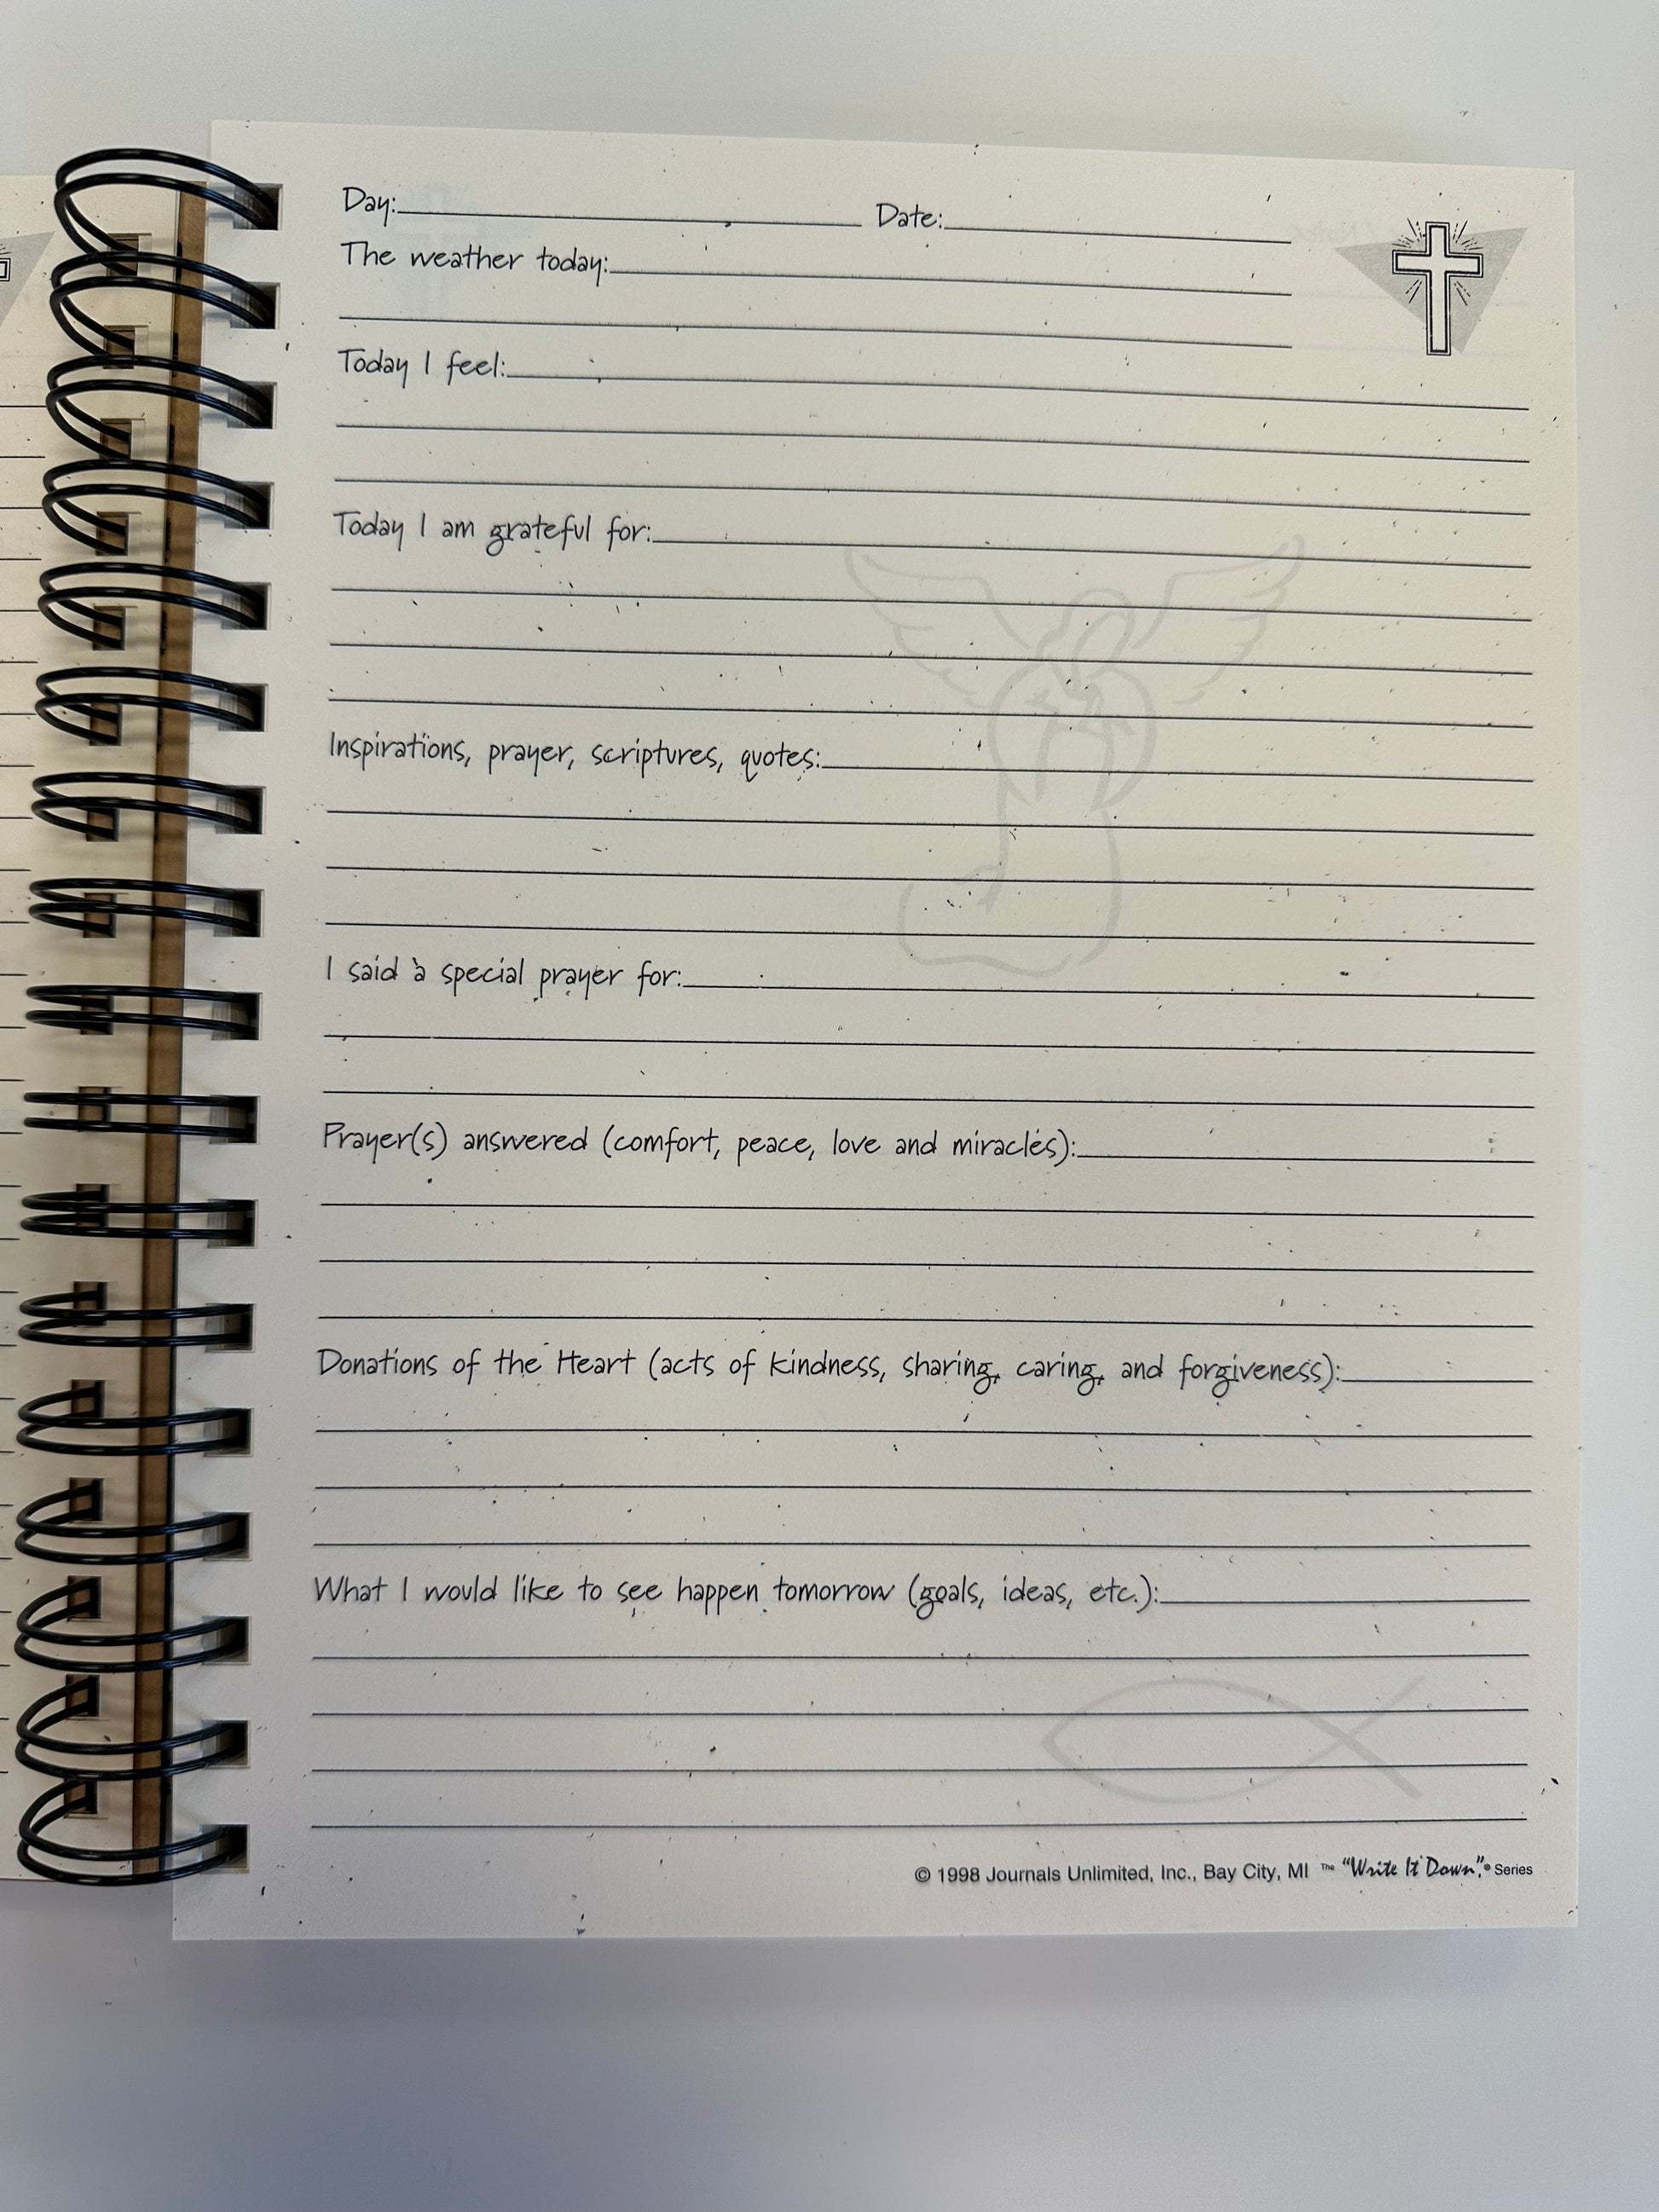 Day: Date:
The weather today:
Today I feel:
Today I am grateful for:
Inspirations, prayer, scriptures, quotes:
I said a special prayer for:
Prayer(s) answered (comfort, peace, love and miracles):
Donations of the Heart (acts of kindness, sharing, caring, and forgiveness):
What I would like to see happen tomorrow (goals, ideas, etc.):
© 1998 Journals Unlimited, Inc., Bay City, MI The "Write It Down".® Series